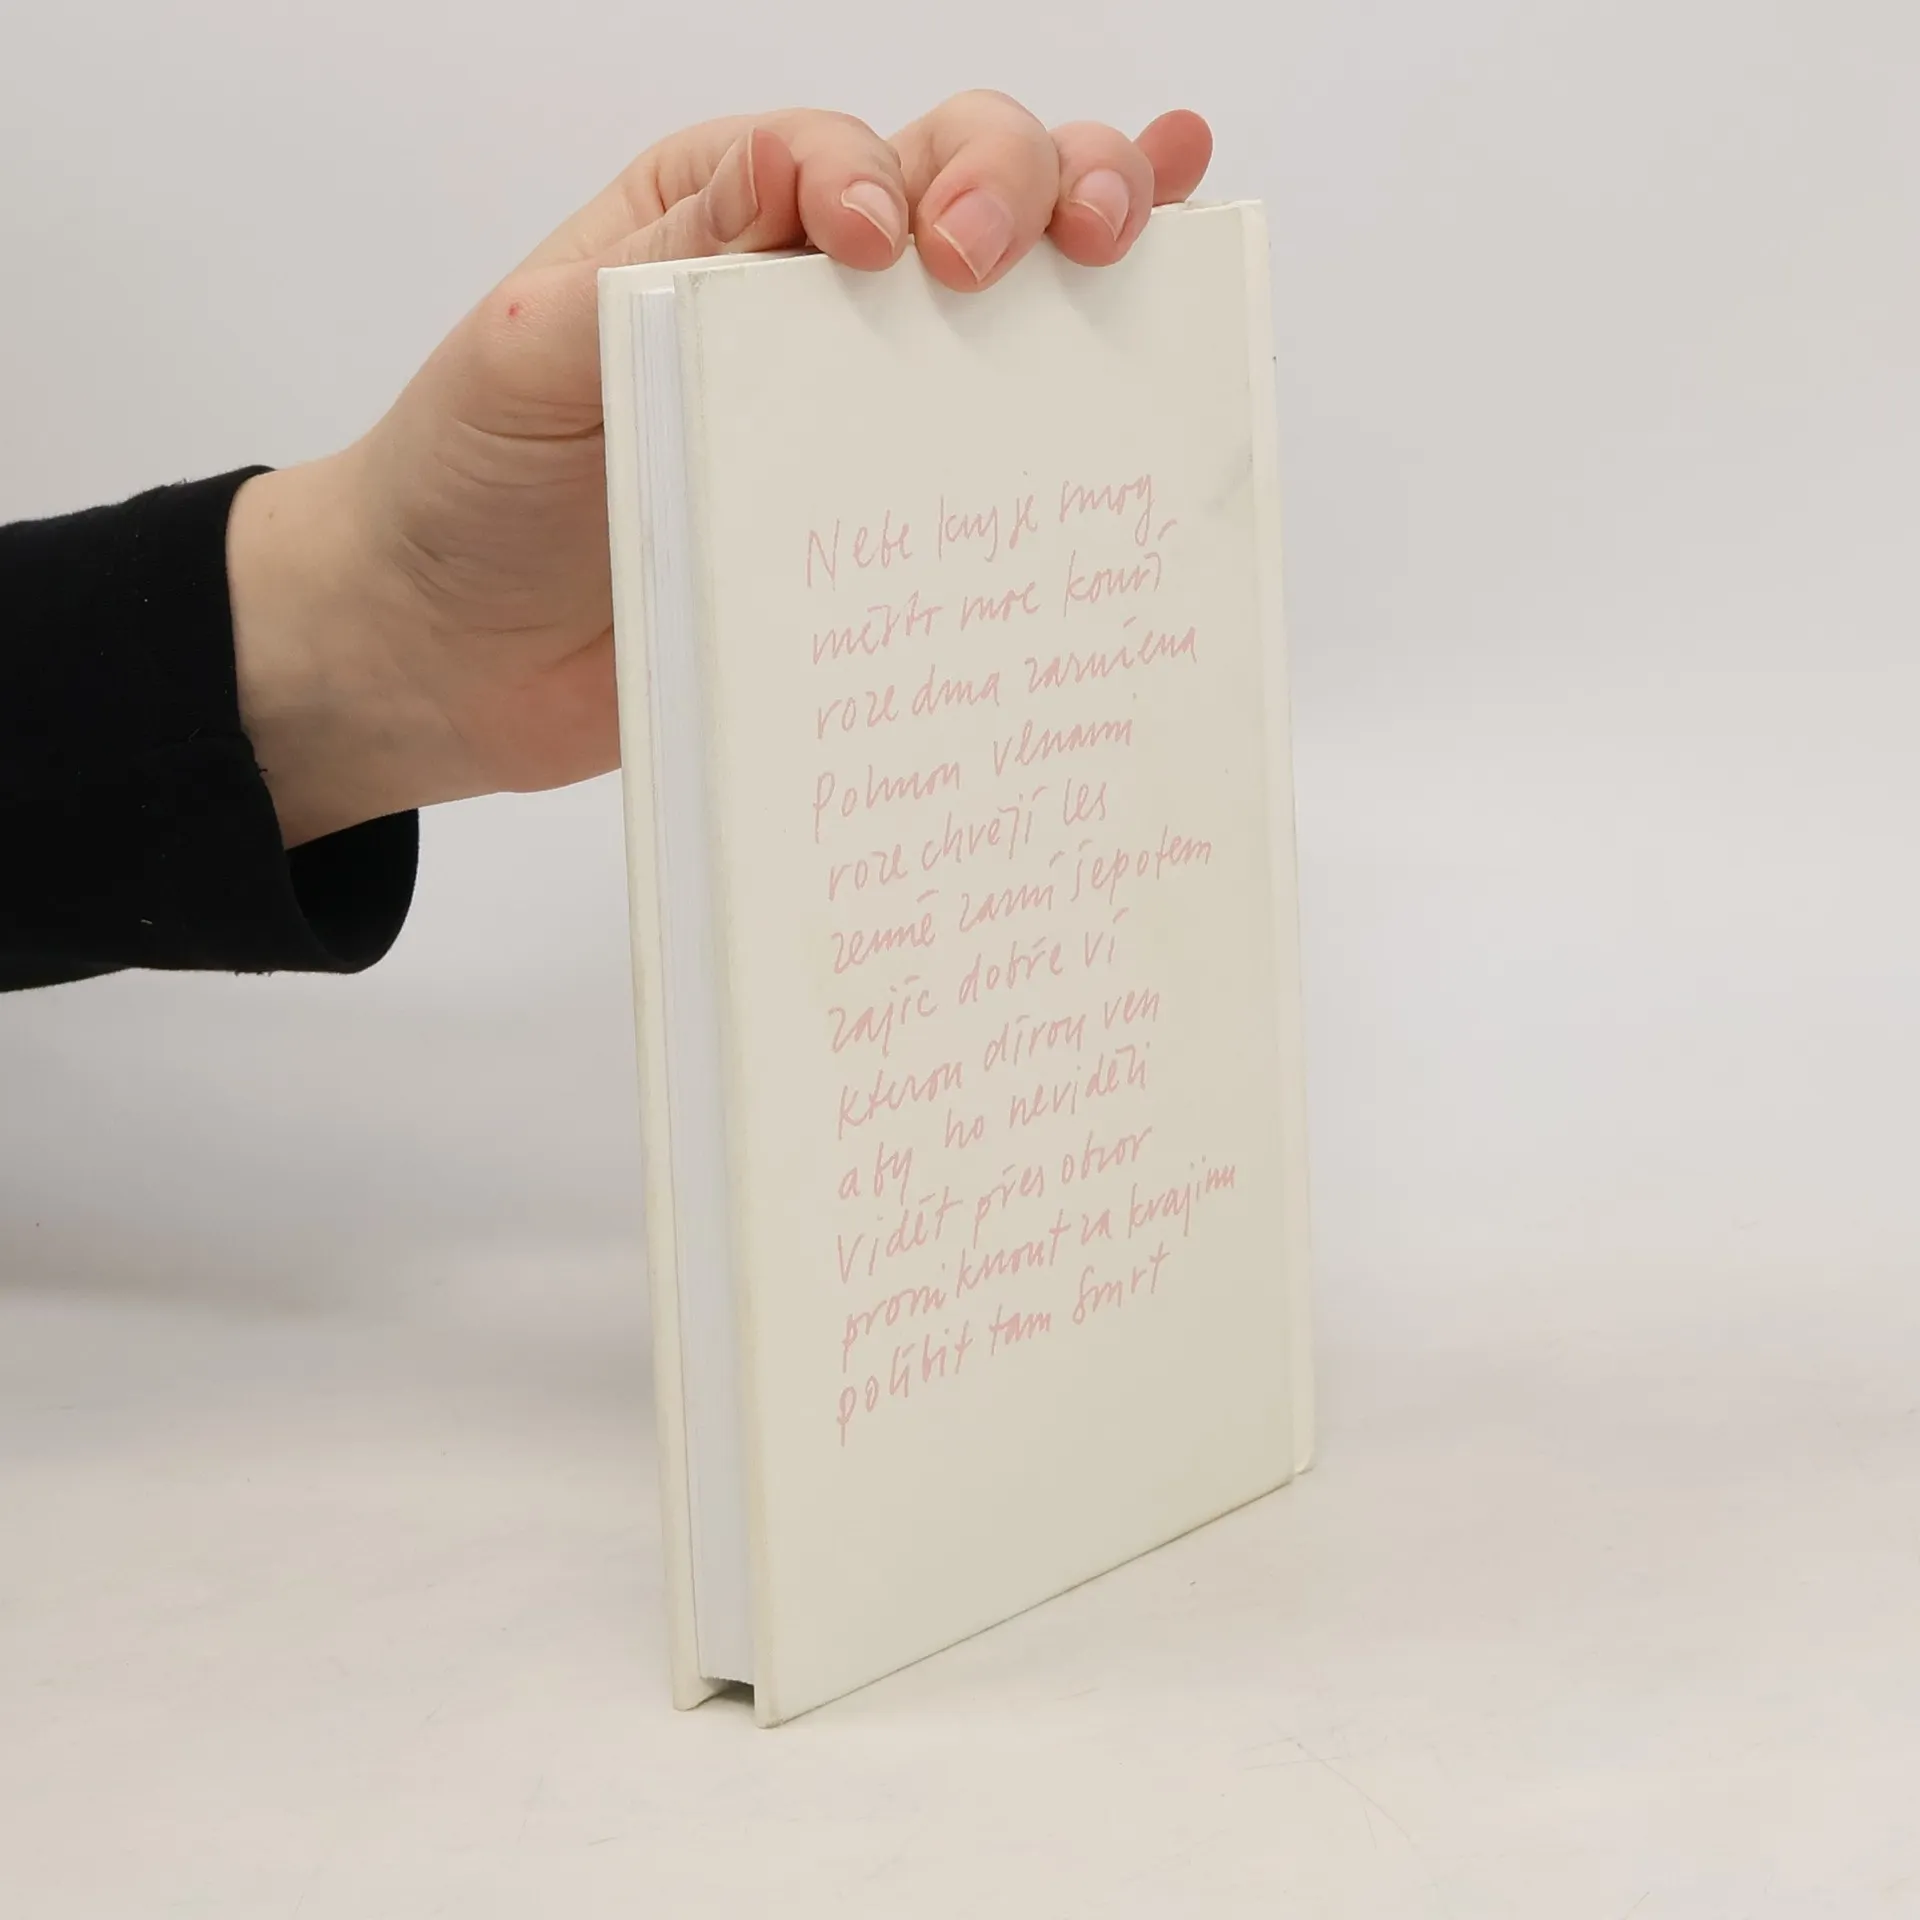 Nebe kryje smog
město moře kouří
roze dma zarmícena
Pohnou vlnami
roze chvějí les
země zazní šepotem
zajíc dobře ví
kterou dírou ven
aby ho neviděli
Vidět přes obzor
proniknout za krajinu
políbit tam Smrt